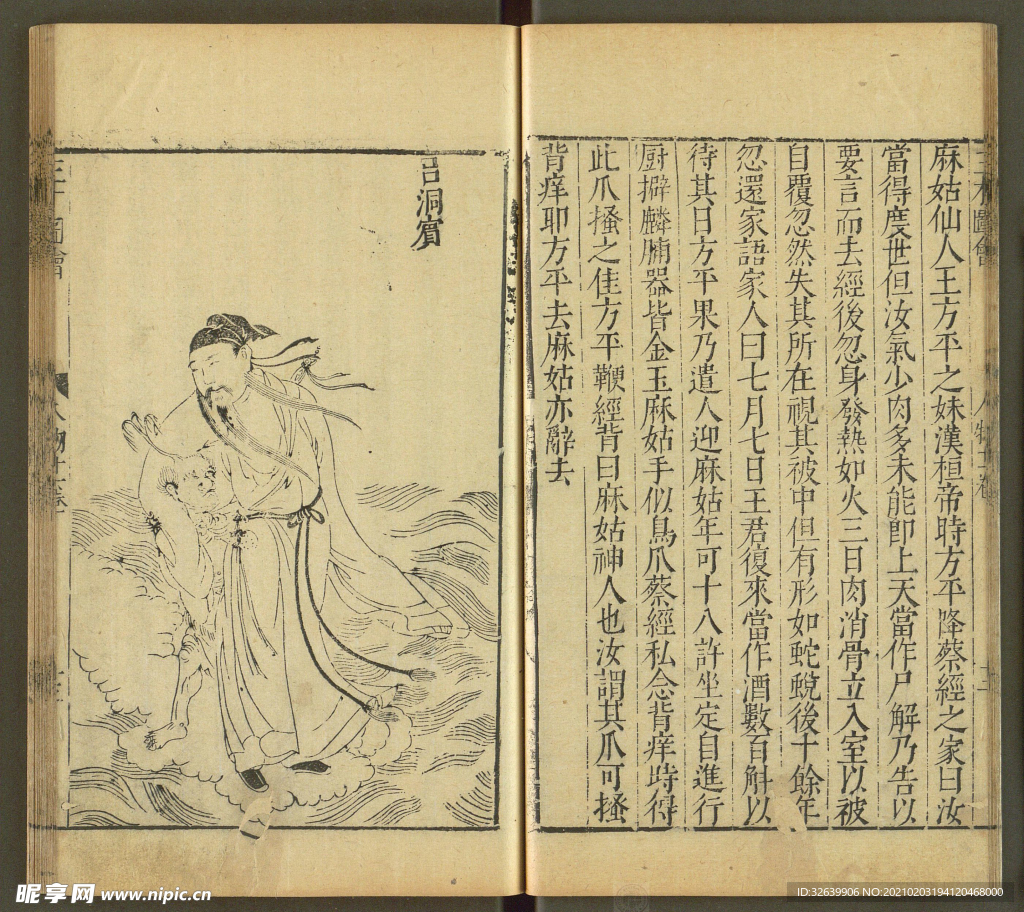 麻姑仙人王方平之妹漢桓帝時方平降蔡經之家曰汝
當得度世但汝氣少肉多未能卽上天當作尸解乃告以
要言而去經後忽身發熱如火三日肉消骨立入室以被
自覆忽然失其所在視其被中但有形如蛇蛻後十餘年
忽還家語家人曰七月七日王君復來當作酒數百斛以
待其日方平果乃遣人迎麻姑年可十八許坐定自進行
厨擗麟脯器皆金玉麻姑手似鳥爪蔡經私念背痒時得
此爪搔之佳方平鞭經背曰麻姑神人也汝謂其爪可搔
背痒耶方平去麻姑亦辭去
呂洞賔
昵享网 www.nipic.cn
ID:32639906 NO:20210203194120468000